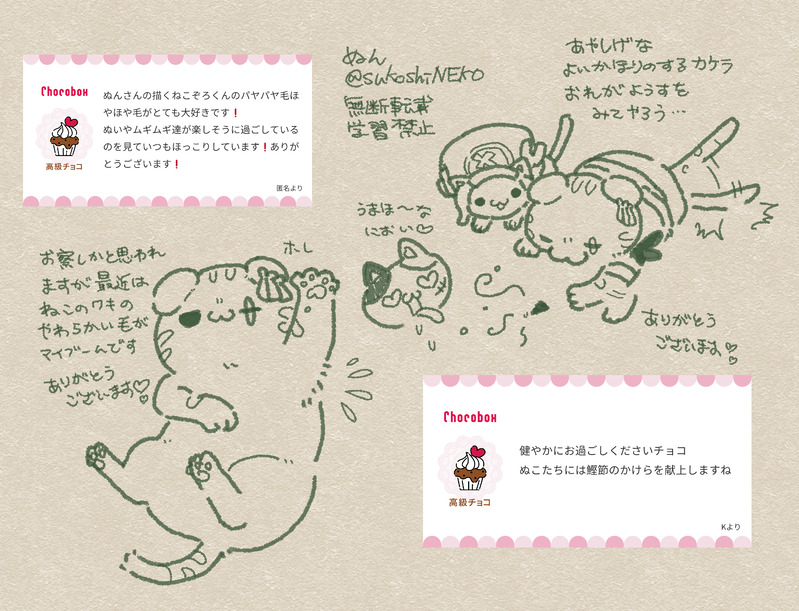 ぬん
@sukoshiNEKO
無断転載
学習 禁止
あやしげな
よいかほりのするカケラ
おれがようすを
みてやろう…
Chocobox
高級チョコ
ぬんさんの描くねこぞろくんのパヤパヤ毛ほ
やほや毛がとても大好きです！
ぬいやムギムギ達が楽しそうに過ごしている
のを見ていつもほっこりしています！ありが
とうございます！
匿名より
うまほ〜な
におい♡
お察しかと思われ
ますが最近は
ねこのワキの
やわらかい毛が
マイブームです
ありがとう
ございます♡
ホレ
ありがとう
ございます♡
Chocobox
高級チョコ
健やかにお過ごしくださいチョコ
ぬこたちには鰹節のかけらを献上しますね
Kより